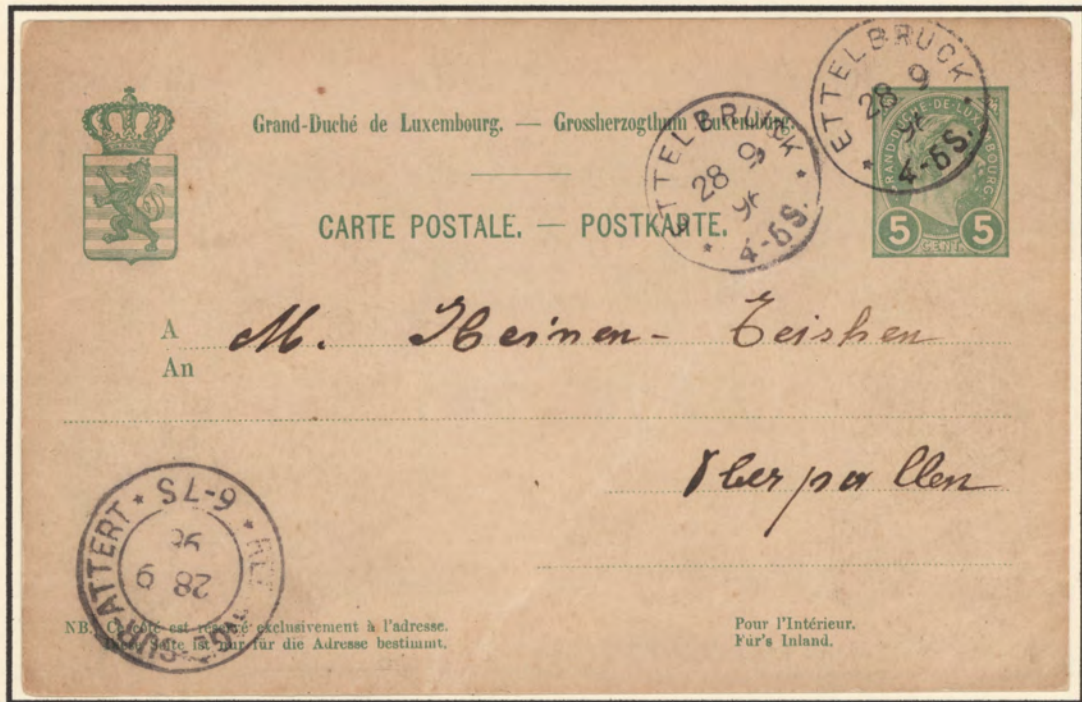 Grand-Duché de Luxembourg. — Grossherzogthum Luxemburg.
CARTE POSTALE. — POSTKARTE.
ETTELBRUCK
28 9
96
4-5S.
ETTELBRUCK
28 9
96
4-5S.
GRAND-DUCHÉ-DE-LUXEMBOURG
5 CENT. 5
A M. Heinen-Teishen
An
Oberpallen
SUR-ATTERT * 6-7S *
28 9
96
NB. Ce côté est réservé exclusivement à l'adresse.
Diese Seite ist nur für die Adresse bestimmt.
Pour l'Intérieur.
Für's Inland.